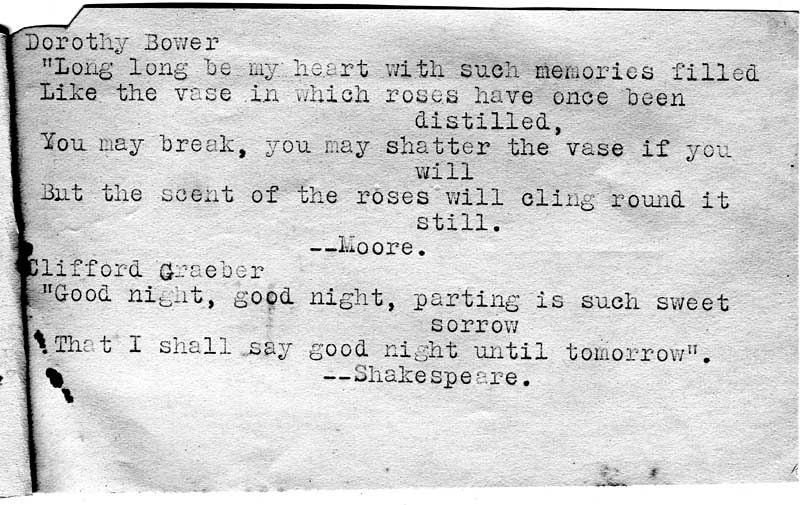 Dorothy Bower
"Long long be my heart with such memories filled
Like the vase in which roses have once been
distilled,
You may break, you may shatter the vase if you
will
But the scent of the roses will cling round it
still.
--Moore.
Clifford Graeber
"Good night, good night, parting is such sweet
sorrow
That I shall say good night until tomorrow".
--Shakespeare.